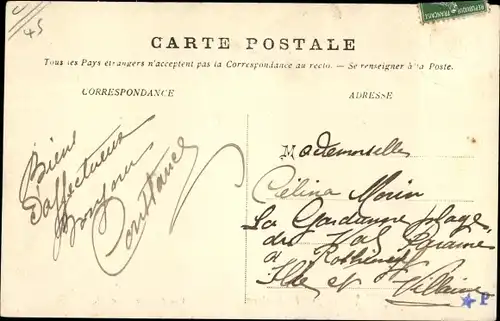 45
REPUBLIQUE FRANÇAISE
CARTE POSTALE
Tous les Pays étrangers n'acceptent pas la Correspondance au recto. — Se renseigner à la Poste.
CORRESPONDANCE
ADRESSE
Biens
d'affectueux
Bonjour
Constance
Mademoiselle
Célina Morin
La Gardanne plage
du Val Paramé
à Rothéneuf
Ille et Villaine